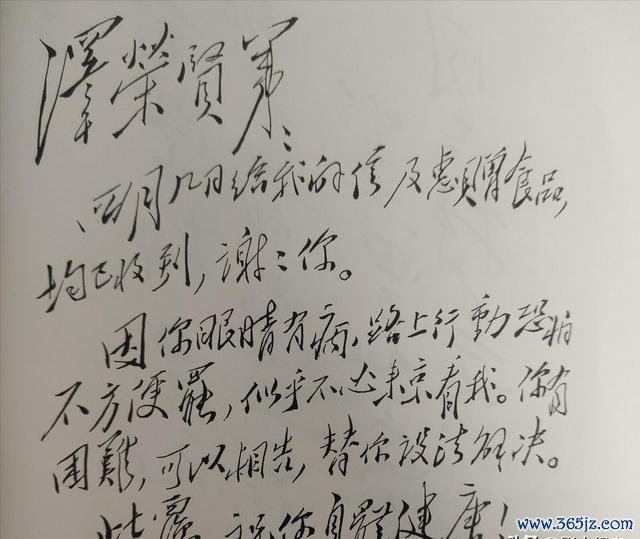 澤榮賢弟：
四月八日给我的信及惠贈食品，
均已收到，謝々你。
因你眼睛有病，路上行動恐怕
不方便罷，似乎不必来京看我。你有
困難，可以相告，替你設法解决。
此覆 祝你身體健康！
www.365jz.com